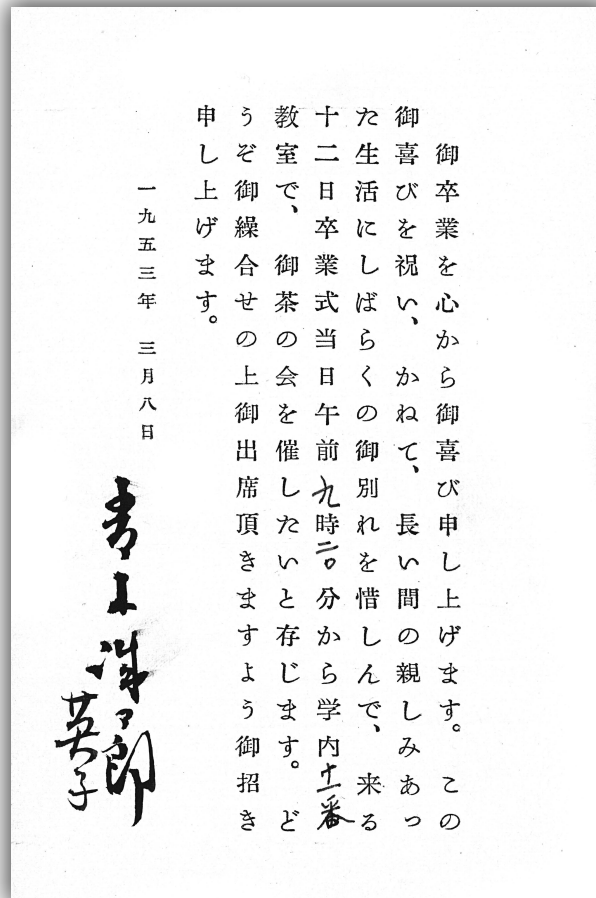 御卒業を心から御喜び申し上げます。この
御喜びを祝い、かねて、長い間の親しみあっ
た生活にしばらくの御別れを惜しんで、来る
十二日卒業式当日午前九時二〇分から学内十一番
教室で、御茶の会を催したいと存じます。ど
うぞ御繰合せの上御出席頂きますよう御招き
申し上げます。
一九五三年 三月八日
青木 郎
英子